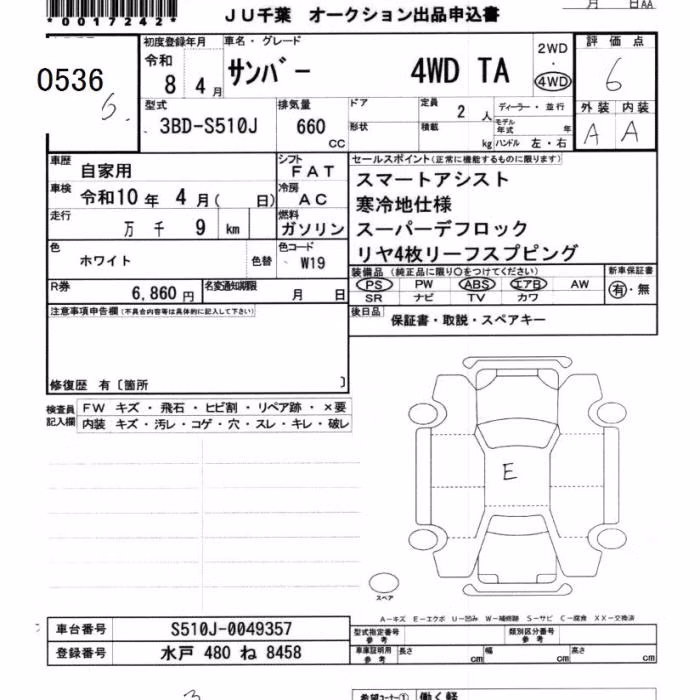 *0017242*
JU千葉 オークション出品申込書
月 日AA
0536
初度登録年月
令和
8 4 月
車名・グレード
サンバー 4WD TA
2WD
・
4WD
評価点
6
型式
3BD-S510J
排気量
660
CC
ドア
形状
定員
2 人
積載
kg
ディーラー・並行
モデル年式 年
ハンドル 左・右
外装 内装
A A
車歴
自家用
シフト
FAT
車検
令和10年 4月( 日)
冷房
AC
走行
万 千 9 km
燃料
ガソリン
色
ホワイト
色替
色コード
W19
R券
6,860円
名変通知期限
月 日
セールスポイント(正常に機能するものに限ります)
スマートアシスト
寒冷地仕様
スーパーデフロック
リヤ4枚リーフスプピング
装備品(純正品に限り○をつけてください)
PS PW ABS エアB AW
SR ナビ TV カワ
新車保証書
有・無
後日品
保証書・取説・スペアキー
注意事項申告欄(不具合内容等は具体的に記入して下さい)
修復歴 有〔箇所 〕
検査員記入欄
FW キズ・飛石・ヒビ割・リペア跡・×要
内装 キズ・汚レ・コゲ・穴・スレ・キレ・破レ
E
スペア
A－キズ E－エクボ U－凹み W－補修跡 S－サビ C－腐食 XX－交換済
車台番号 S510J-0049357
登録番号 水戸 480 ね 8458
型式指定番号
参考
類別区分番号
参考
車庫証明用
参考
長さ cm 幅 cm 高さ cm
希望コーナー① 働く軽